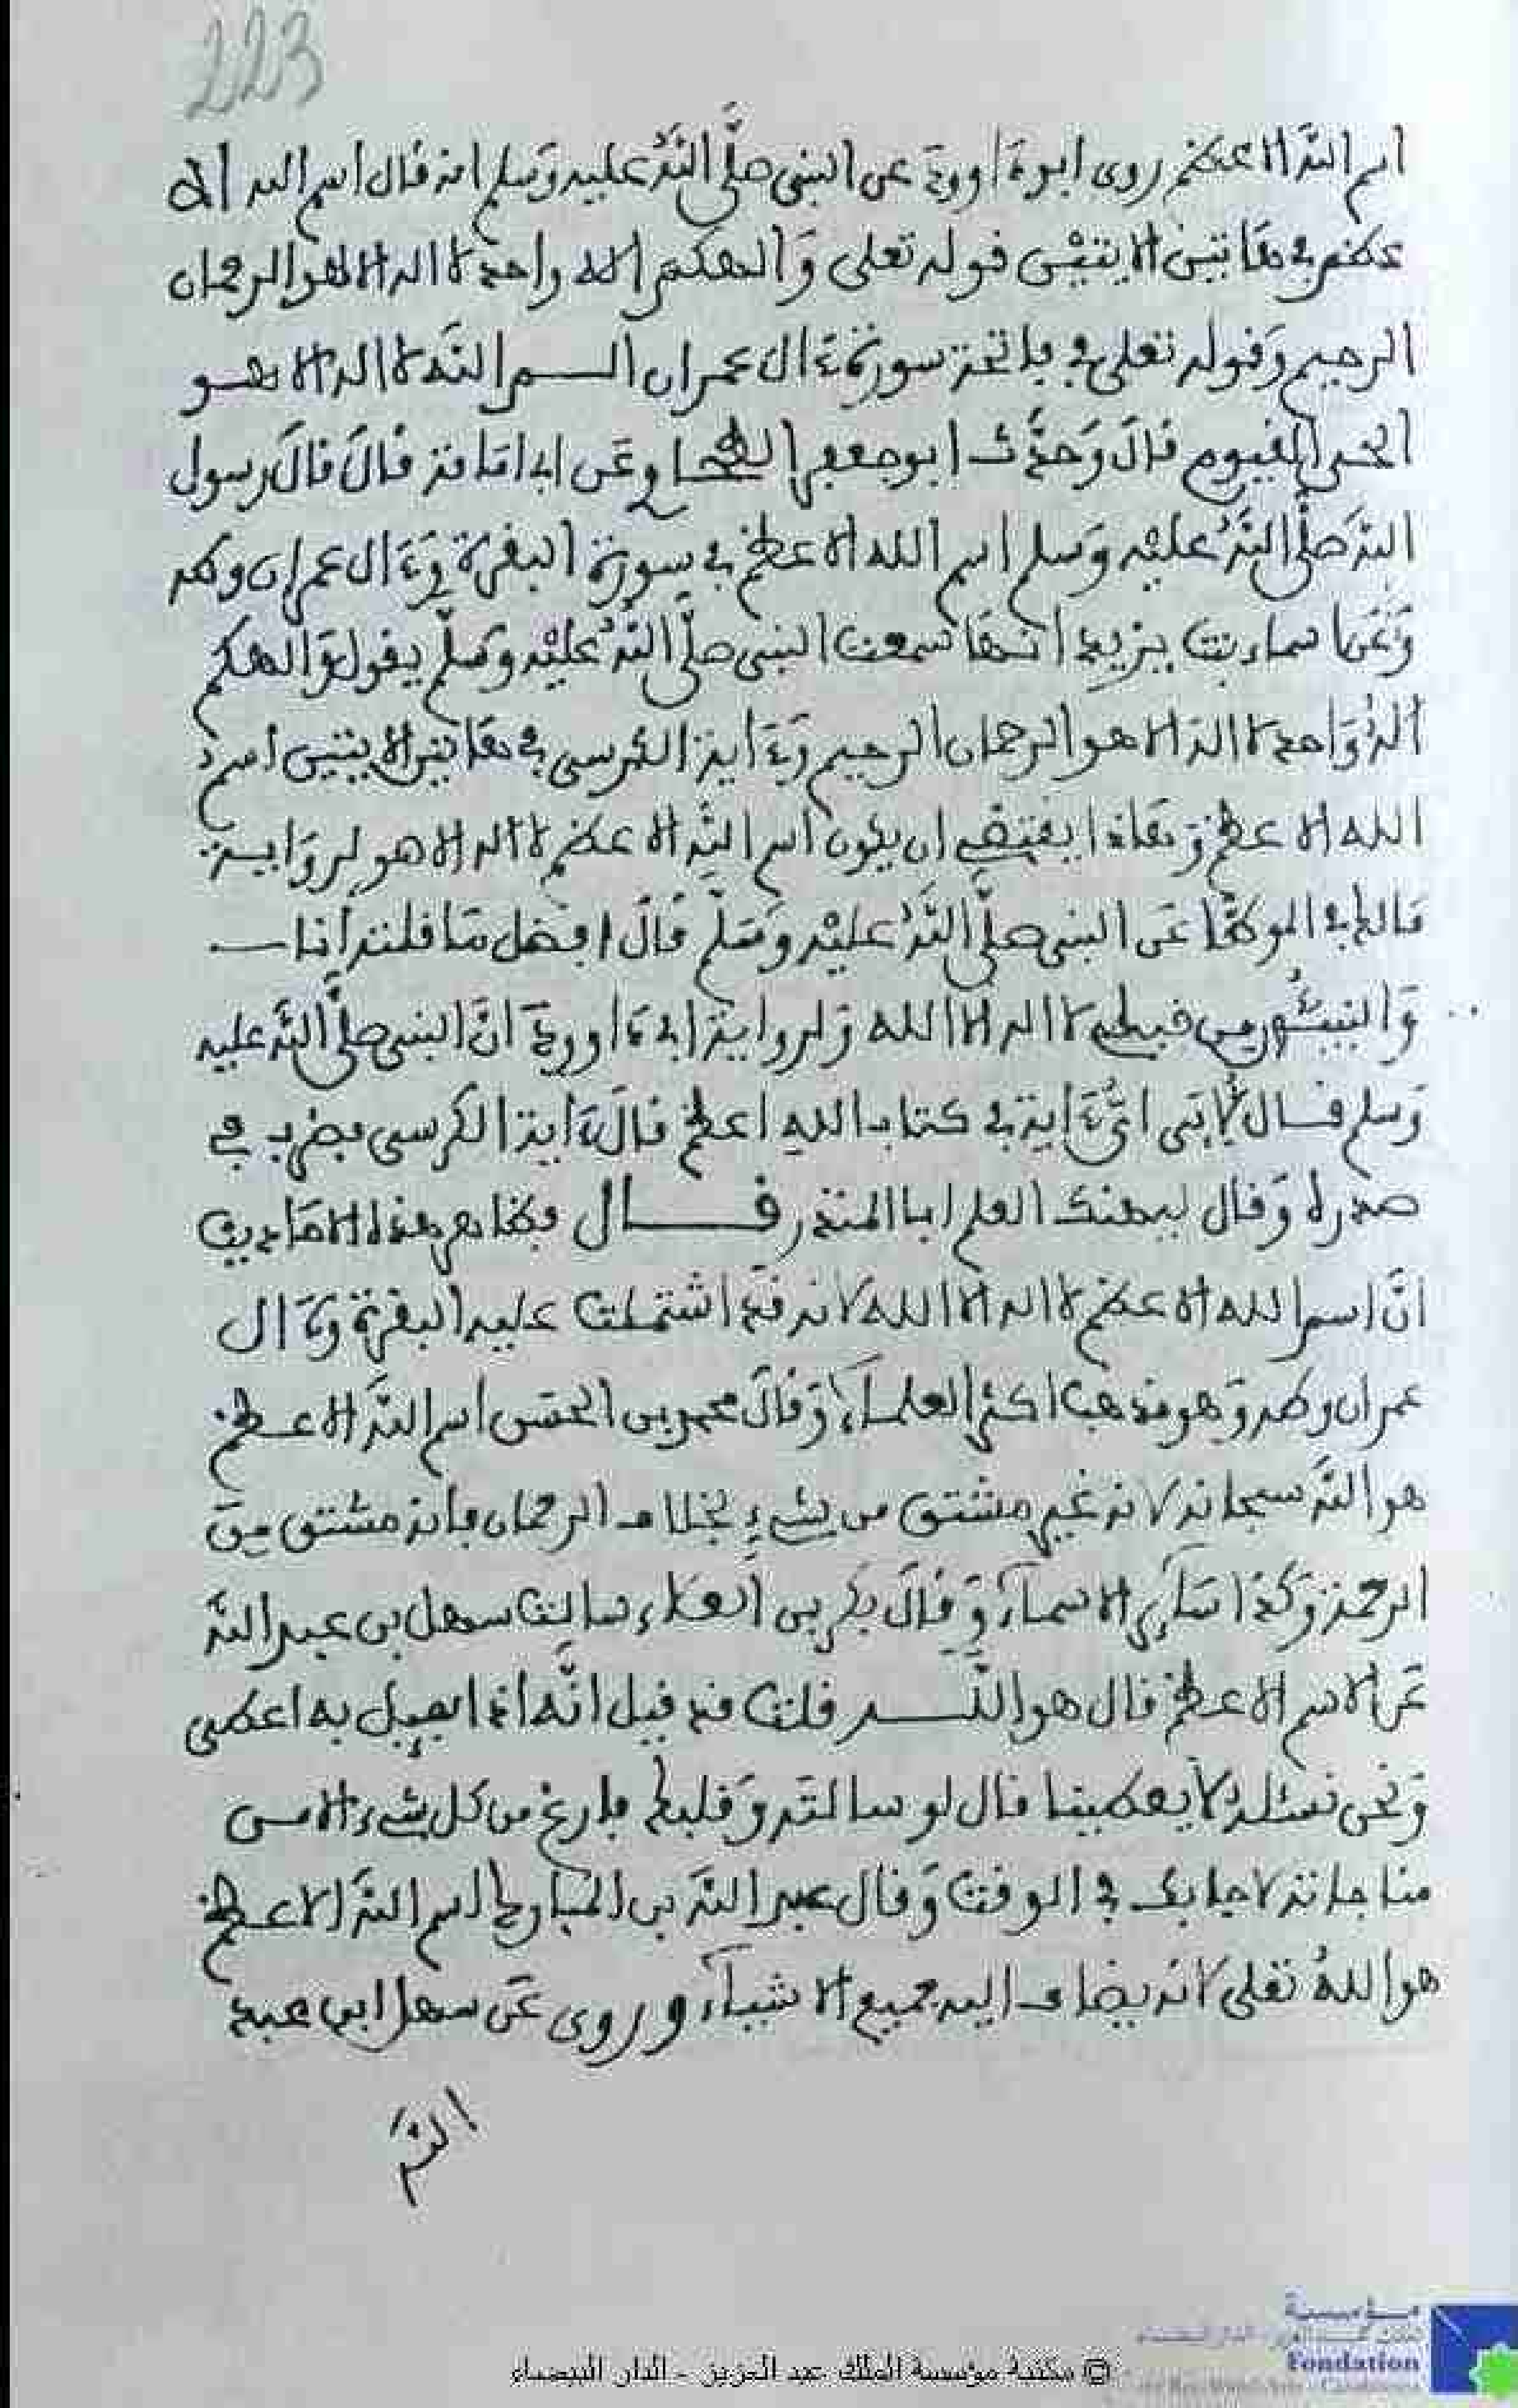 223
اسم الله الاعظم روى ابو داوود عن النبي صلى الله عليه وسلم انه قال اسم الله الا
عظم في هاتين الايتين قوله تعلى والهكم اله واحد لا اله الا هو الرحمان
الرحيم وقوله تعلى في فاتحة سورة ءال عمران الم الله لا اله الا هو
الحي القيوم قال وحدث ابو جعفر عن ابي امامة قال قال رسول
الله صلى الله عليه وسلم اسم الله الاعظم في سورة البقرة وءال عمران وطه
وعن اسماء بنت يزيد انها سمعت النبي صلى الله عليه وسلم يقول والهكم
اله واحد لا اله الا هو الرحمان الرحيم وءاية الكرسي في هاتين الايتين اسم
الله الاعظم وهاذا يقتضي ان يكون اسم الله الاعظم لا اله الا هو لرواية
مالك في الموطا عن النبي صلى الله عليه وسلم قال افضل ما قلته انا
والنبيئون من قبلي لا اله الا الله ولرواية ابي داوود ان النبي صلى الله عليه
وسلم قال لابي اي ءاية في كتاب الله اعظم قال ءاية الكرسي فضرب في
صدره وقال ليهنك العلم ابا المنذر قال فظاهر هذه الاحاديث
ان اسم الله الاعظم لا اله الا الله لانه قد اشتملت عليه البقرة وءال
عمران وطه وهو مذهب اكثر العلماء وقال محمد بن الحسن اسم الله الاعظم
هو الله سبحانه لانه غير مشتق من شيء بخلاف الرحمان فانه مشتق من
الرحمة وكذا سائر الاسماء وقال بكر بن العلاء سالت سهل بن عبد الله
عن الاسم الاعظم قال هو الله قلت قد قيل انه اذا سيل به اعطى
ونحن نسئله لا يعطينا قال لو سالته وقلبك فارغ من كل شيء الا من
مناجاته لاجابك في الوقت وقال عبد الله بن المبارك اسم الله الاعظم
هو الله تعلى لانه يضاف اليه جميع الاشياء وروي عن سهل ابن عبد
الله
مؤسسة
Fondation
© مكتبة مؤسسة الملك عبد العزيز - الدار البيضاء